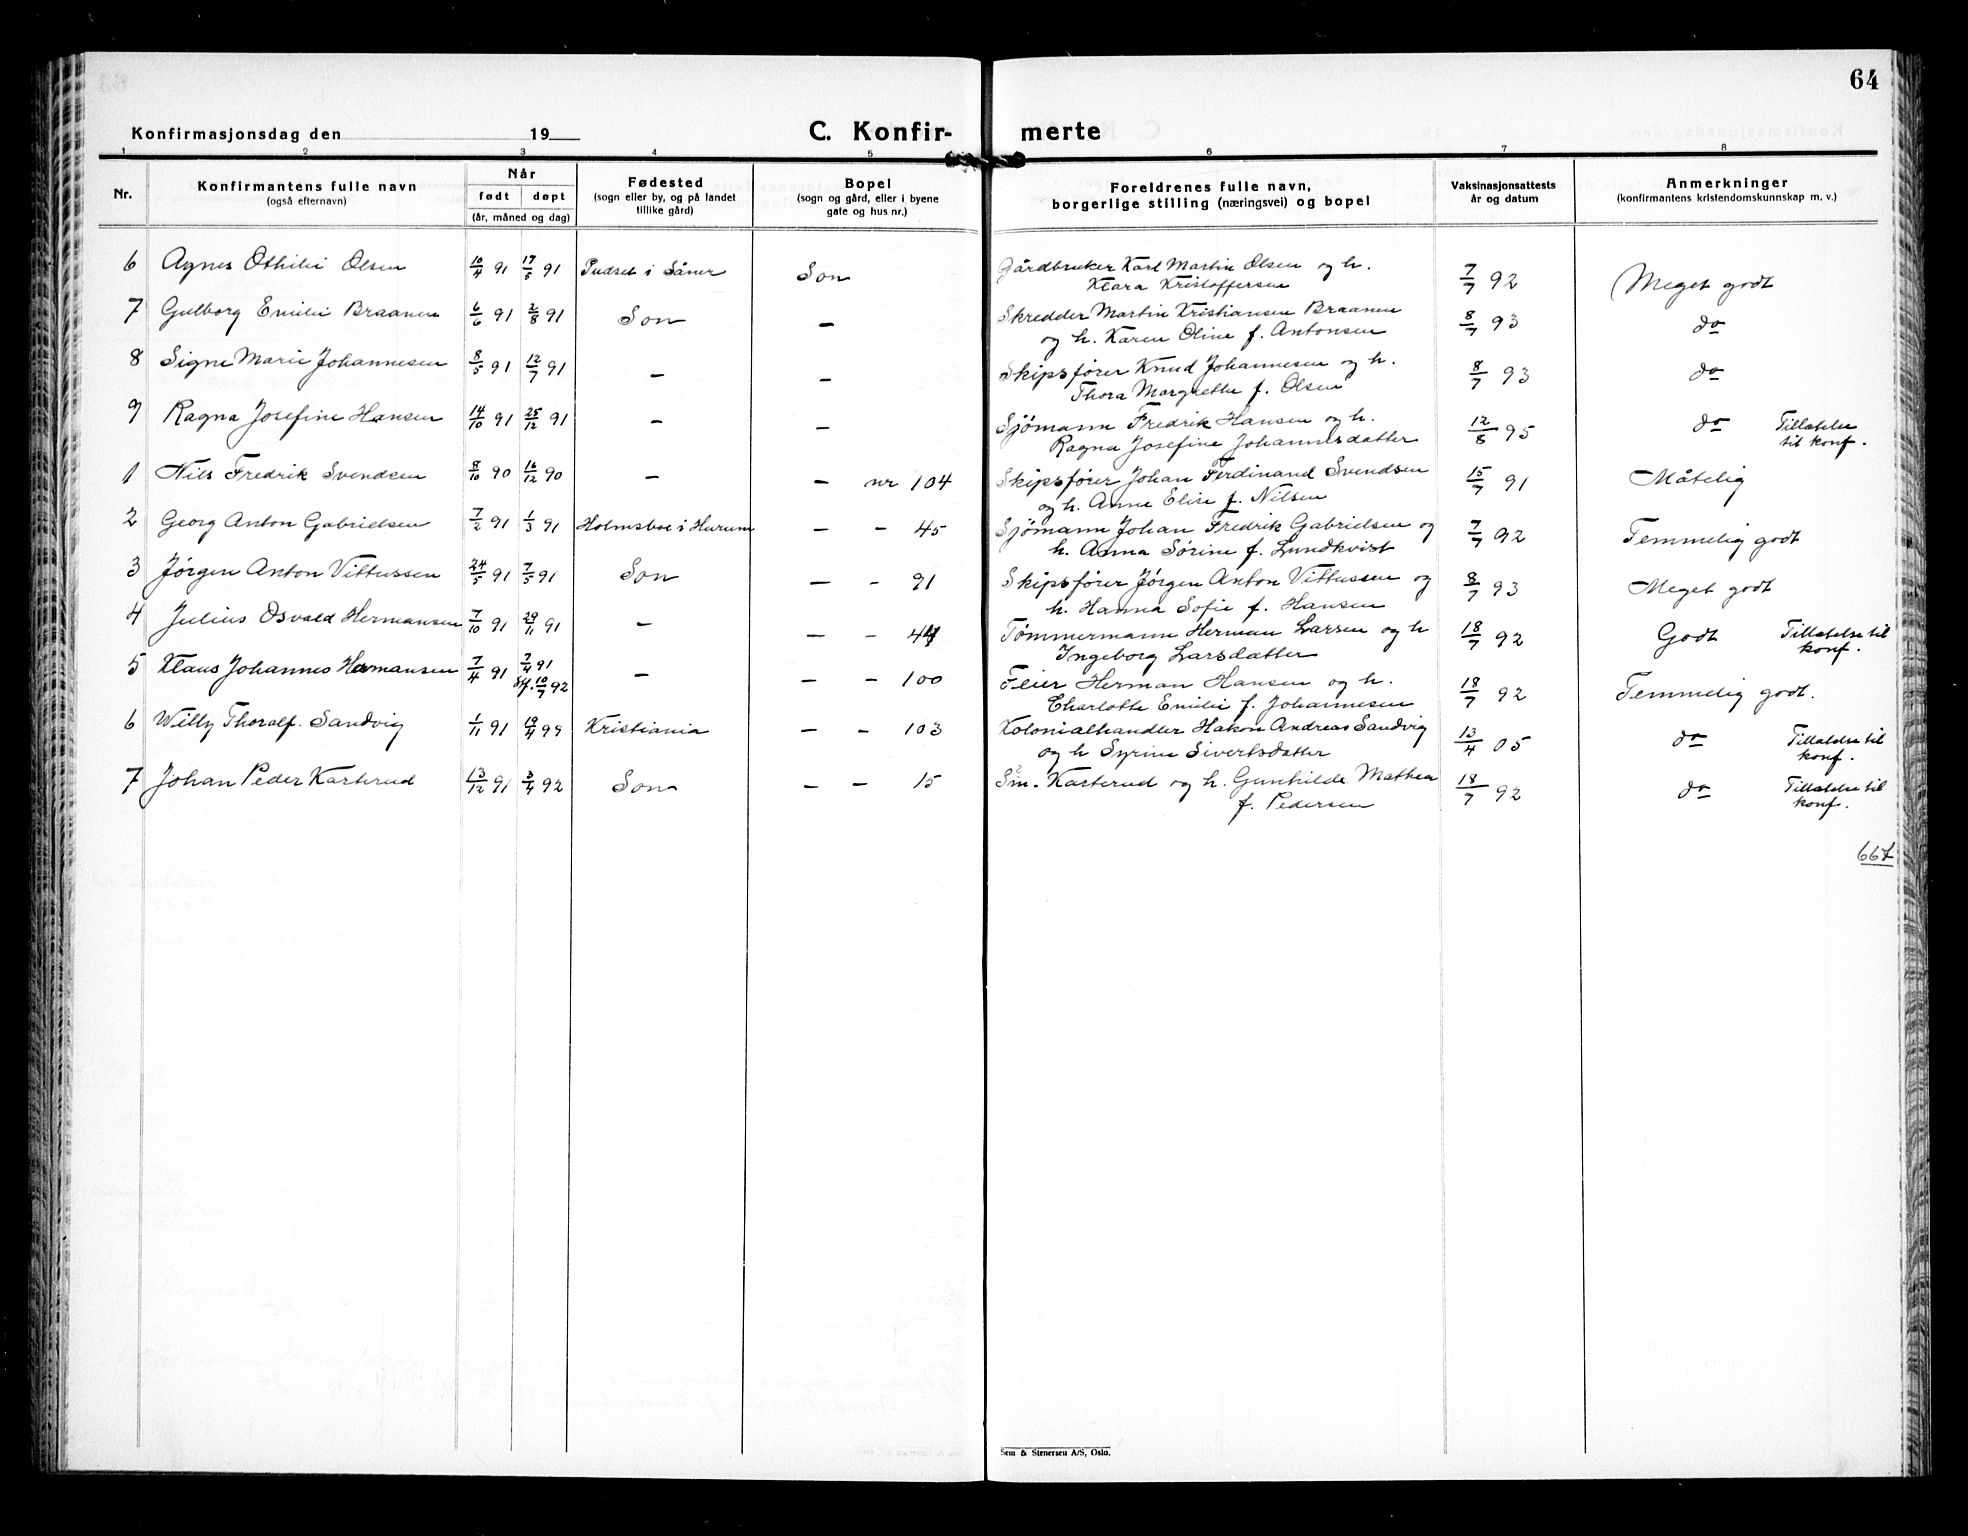 64
Konfirmasjonsdag den 19
C. Konfir- merte
1 2 3 4 5 6 7 8
Nr.
Konfirmantens fulle navn
(også efternavn)
Når
født døpt
(år, måned og dag)
Fødested
(sogn eller by, og på landet
tillike gård)
Bopel
(sogn og gård, eller i byene
gate og hus nr.)
Foreldrenes fulle navn,
borgerlige stilling (næringsvei) og bopel
Vaksinasjonsattests
år og datum
Anmerkninger
(konfirmantens kristendomskunnskap m. v.)
6 Agnes Othilie Olsen 10/4 91 17/5 91 i Såner Son Gårdbruker Karl Martin Olsen og h. 7/7 92 Meget godt
Klara Kristoffersen
7 Gulborg Emilie Braanen 6/6 91 2/8 91 Son – Skredder Martin Kristiansen Braanen 8/7 93 do
og h. Karen Oline f. Antonsen
8 Signe Marie Johannesen 8/5 91 12/7 91 – – Skipsfører Knud Johannesen og h. 8/7 93 do
Thora Margrethe f. Olsen
9 Ragna Josefine Hansen 14/10 91 25/12 91 – – Sjömann Fredrik Hansen og h. 12/8 95 do Tillatelse
Ragna Josefine Johannesdatter til konf.
1 Nils Fredrik Svendsen 8/10 90 16/12 90 – – nr 104 Skipsfører Johan Ferdinand Svendsen 15/7 91 Måtelig
og h. Anne Elise f. Nilsen
2 Georg Anton Gabrielsen 7/2 91 1/3 91 Holmsboe i Hurum – – 45 Sjömann Johan Fredrik Gabrielsen og 7/7 92 Temmelig godt
h. Anna Sørine f. Lundkvist
3 Jørgen Anton Vittussen 24/5 91 7/5 91 Son – – 91 Skipsfører Jørgen Anton Vittussen og 8/7 93 Meget godt
h. Hanna Sofie f. Hansen
4 Julius Osvald Hermansen 7/10 91 29/11 91 – – – Tömmermann Herman Larsen og h 18/7 92 Godt Tillatelse til
Ingeborg Larsdatter konf.
5 Klaus Johannes Hermansen 7/4 91 7/4 91 – – – 100 Feier Herman Hansen og h. 18/7 92 Temmelig godt.
10/7 92 Charlotte Emilie f. Johannesen
6 Willy Thoralf Sandvig 1/11 91 19/4 99 Kristiania – – 103 Kolonialhandler Hakon Andreas Sandvig 13/4 05 do Tillatelse til
og h Syrine Sivertsdatter konf.
7 Johan Peder Karterud 13/12 91 3/4 92 Son – – 15 Sm. Karterud og h. Gunhilde Mathea 18/7 92 do Tillatelse til
f. Pedersen konf.
667
Sem & Stenersen A/S, Oslo.